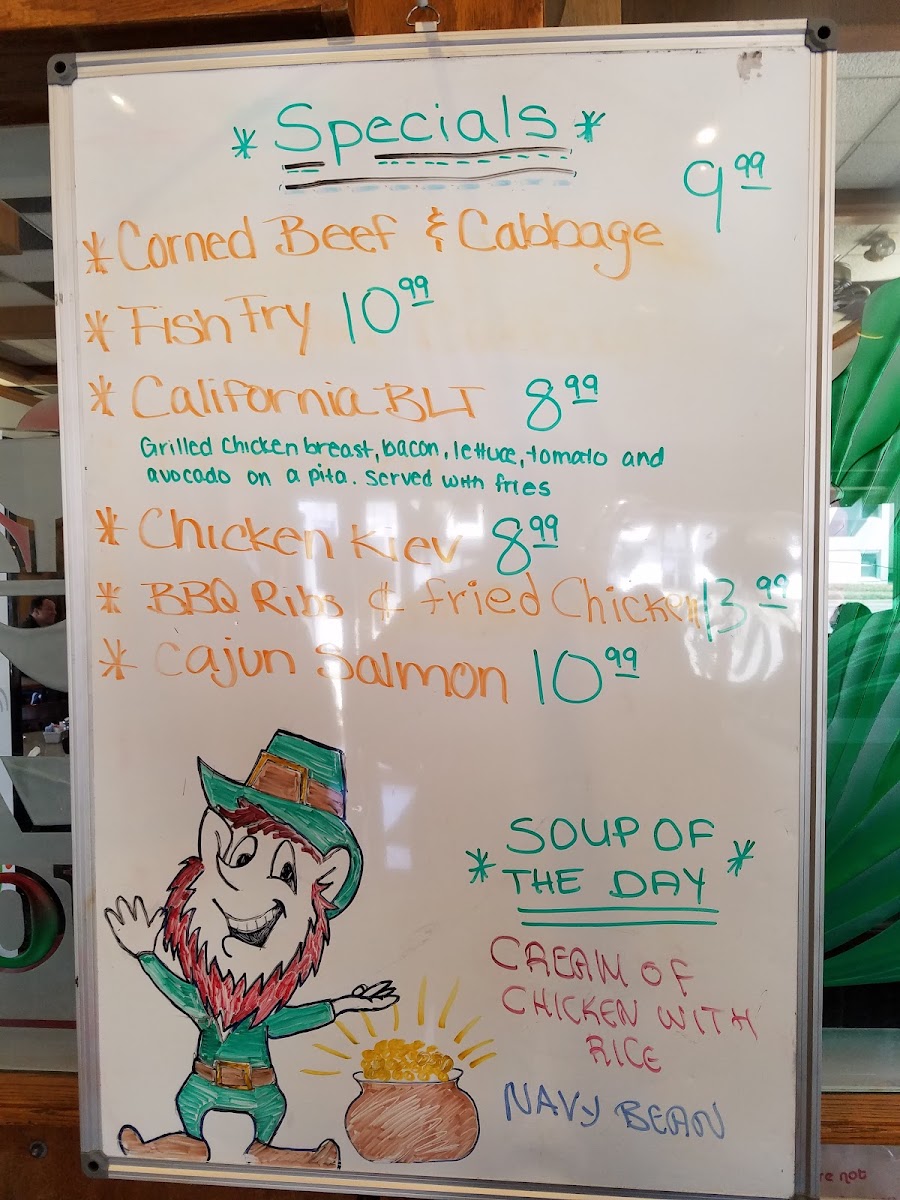 * Specials *
* Corned Beef & Cabbage 9.99
* Fish Fry 10.99
* California BLT 8.99
Grilled chicken breast, bacon, lettuce, tomato and
avocado on a pita. Served with fries
* Chicken Kiev 8.99
* BBQ Ribs & Fried Chicken 13.99
* Cajun Salmon 10.99
* SOUP OF
THE DAY *
CREAM OF
CHICKEN WITH
RICE
NAVY BEAN
re not